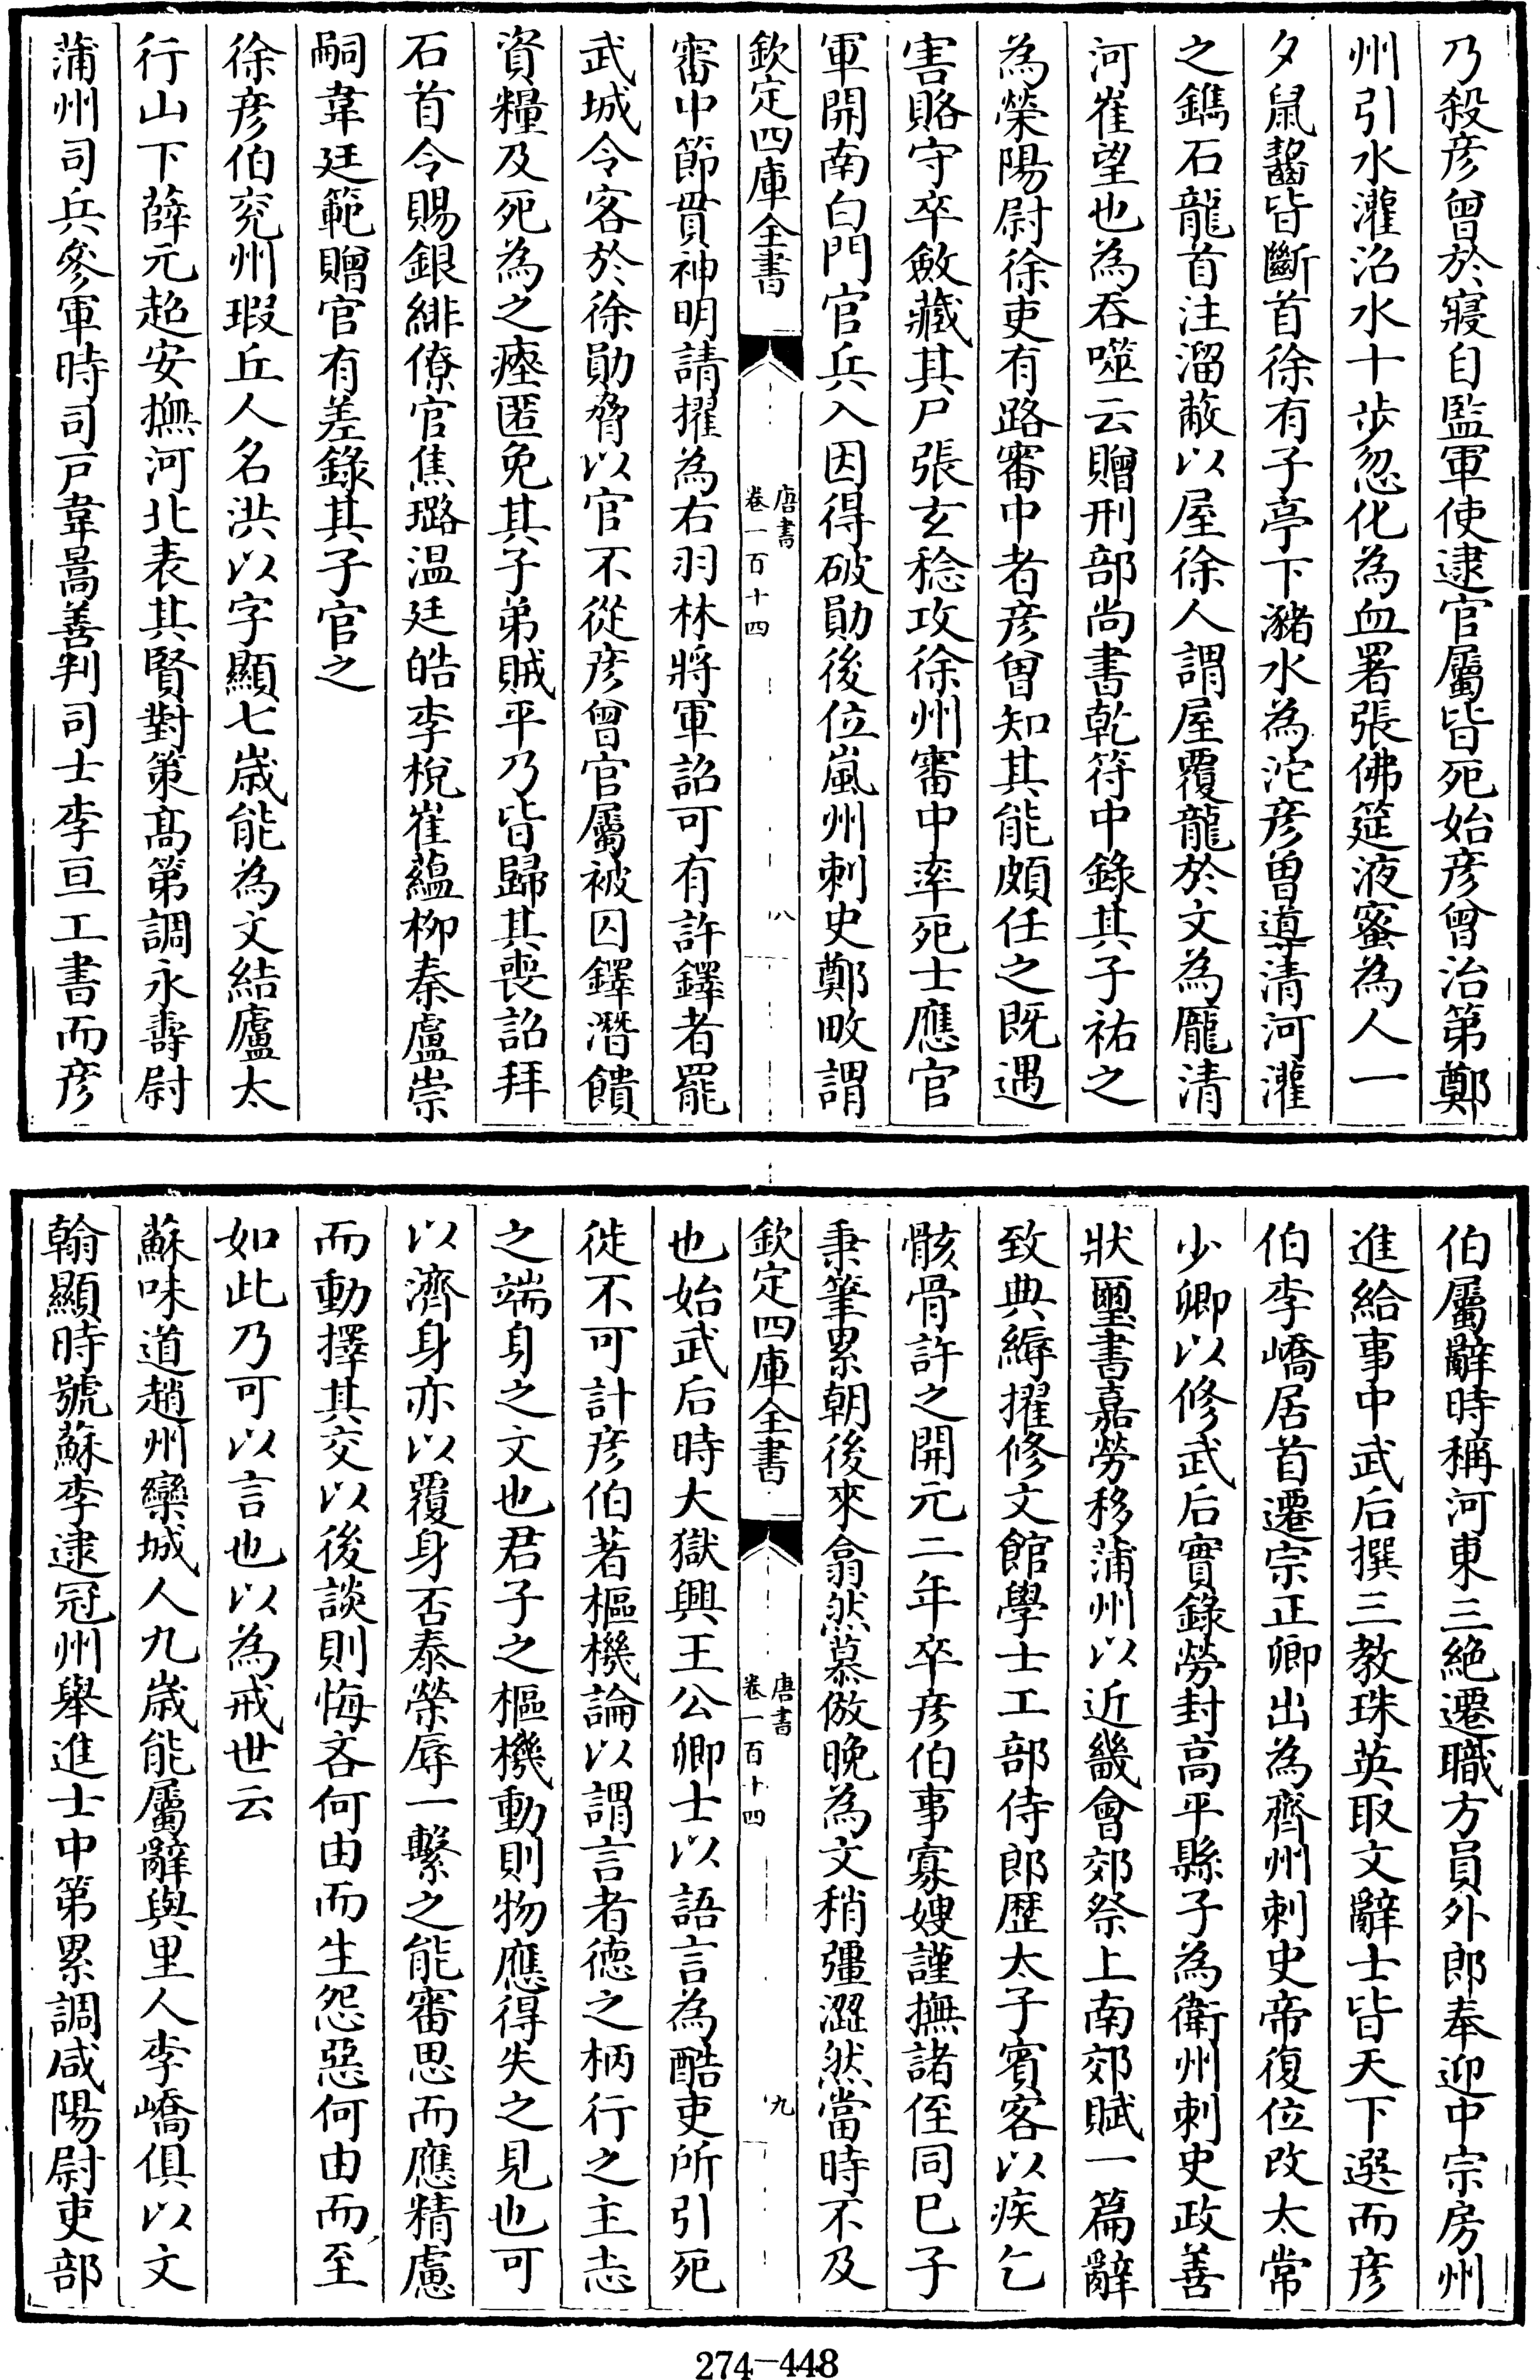 乃殺彦曾於寢自監軍使逮官屬皆死始彦曾治第鄭
州引水灌沼水十歩忽化為血署張佛筵液蜜為人一
夕鼠齧皆斷首徐有子亭下瀦水為沱彦曾導清河灌
之鐫石龍首注溜蔽以屋徐人謂屋覆龍於文為龎清
河崔望也為吞噬云贈刑部尚書乾符中錄其子祐之
為滎陽尉徐吏有路審中者彦曾知其能頗任之既遇
害賂守卒斂藏其尸張玄稔攻徐州審中率死士應官
軍開南白門官兵入因得破勛後位嵐州刺史鄭畋謂
欽定四庫全書
唐書
卷一百十四
八
審中節貫神明請擢為右羽林將軍詔可有許鐸者罷
武城令客於徐勛脅以官不從彦曾官屬被囚鐸潛饋
資糧及死為之瘞匿免其子弟賊平乃皆歸其喪詔拜
石首令賜銀緋僚官焦璐温廷皓李棁崔蘊栁泰盧崇
嗣韋廷範贈官有差錄其子官之
徐彦伯兖州瑕丘人名洪以字顯七歳能為文結廬太
行山下薛元超安撫河北表其賢對策髙第調永壽尉
蒲州司兵參軍時司戸韋暠善判司士李亘工書而彦
伯屬辭時稱河東三絶遷職方員外郎奉迎中宗房州
進給事中武后撰三教珠英取文辭士皆天下選而彦
伯李嶠居首遷宗正卿出為齊州刺史帝復位改太常
少卿以修武后實錄勞封高平縣子為衛州刺史政善
狀璽書嘉勞移蒲州以近畿會郊祭上南郊賦一篇辭
致典縟擢修文館學士工部侍郎歴太子賓客以疾乞
骸骨許之開元二年卒彦伯事寡嫂謹撫諸侄同巳子
秉筆累朝後來翕然慕倣晚為文稍彊澀然當時不及
欽定四庫全書
唐書
卷一百十四
九
也始武后時大獄興王公卿士以語言為酷吏所引死
徙不可計彦伯著樞機論以謂言者德之柄行之主志
之端身之文也君子之樞機動則物應得失之見也可
以濟身亦以覆身否泰榮辱一繫之能審思而應精慮
而動擇其交以後談則悔吝何由而生怨惡何由而至
如此乃可以言也以為戒世云
蘇味道趙州欒城人九歳能屬辭與里人李嶠俱以文
翰顯時號蘇李逮冠州舉進士中第累調咸陽尉吏部
274-448